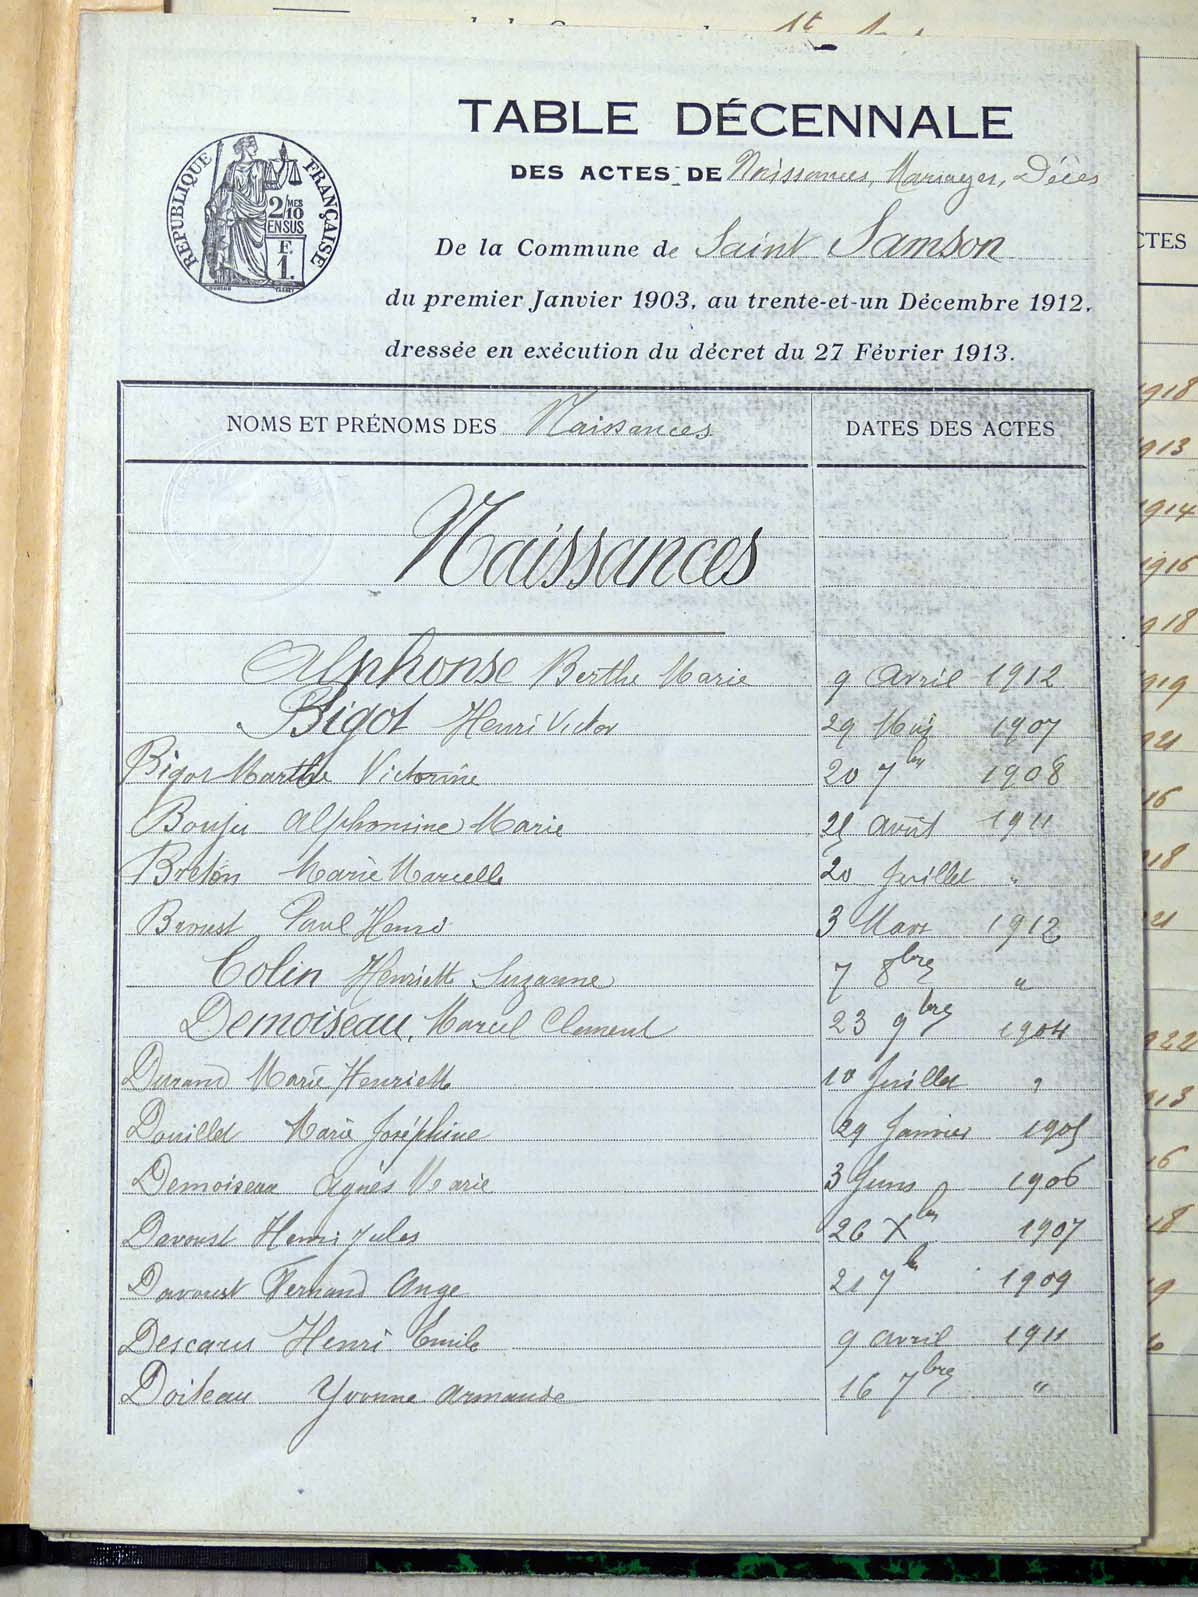 TABLE DÉCENNALE
DES ACTES DE Naissances, Mariages, Décès
RÉPUBLIQUE FRANÇAISE
2/10 MES
EN SUS
F.
1.
De la Commune de Saint Samson
du premier Janvier 1903, au trente-et-un Décembre 1912,
dressée en exécution du décret du 27 Février 1913.
NOMS ET PRÉNOMS DES Naissances DATES DES ACTES
Naissances
Alphonse Berthe Marie 9 Avril 1912
Bigot Henri Victor 29 Mai 1907
Bigot Marthe Victorine 20 7bre 1908
Alphonsine Marie août 1911
Breton Marie Marcelle 20 Juillet "
Paul Henri 3 Mars 1912
Colin Henriette Suzanne 7 8bre "
Demoiseau, Marcel Clement 23 9bre 1904
Durand Marie Henriette 10 Juillet "
Douillet Marie Joséphine 29 Janvier 1905
Demoiseau Agnès Marie 3 Juin 1906
Davoust Henri Jules 26 Xbre 1907
Davoust Fernand Ange 21 7bre 1909
Henri Emile 9 avril 1911
Doiteau Yvonne Armande 16 7bre "
CTES
1918
1913
1914
1916
1918
1919
21
16
18
21
922
13
16
18